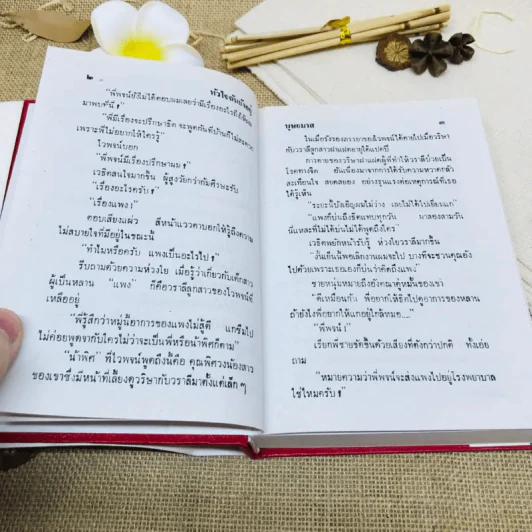 ๒
หัวใจ
"พี่พจน์ยังไม่ได้ตอบผมเลยว่ามีเรื่องอะไรถึงได้
มาพบที่นี่ ?"
"พี่มีเรื่องจะปรึกษาธิต จะพูดกันที่บ้านก็ไม่สะดวก
เพราะพี่ไม่อยากให้ใครรู้"
ไวพจน์บอก
"พี่พจน์มีเรื่องปรึกษาผม ?"
เวธิตสนใจมากขึ้น ผู้สูงวัยกว่าก้มศีรษะรับ
"เรื่องอะไรครับ ?"
"เรื่องแพง !"
ตอบเสียงแผ่ว สีหน้าแววตาบอกให้รู้ถึงความ
ไม่สบายใจที่มีอยู่ในขณะนี้
"ทำไมหรือครับ แพงเป็นอะไรไป ?"
รีบถามด้วยความห่วงใย เมื่อรู้ว่าเกี่ยวกับเด็กสาว
ผู้เป็นหลาน "แพง" ก็คือวราลีลูกสาวของไวพจน์ที่
เหลืออยู่
"พี่รู้สึกว่าหมู่นี้อาการของแพงไม่สู้ดี แกซึมไป
ไม่ค่อยพูดจากับใครไม่ว่าจะเป็นพี่หรือน้าพิศก็ตาม"
"น้าพิศ" ที่ไวพจน์พูดถึงนี้คือ คุณพิศวงน้องสาว
ของเขาซึ่งมีหน้าที่เลี้ยงดูวริษากับวราลีมาตั้งแต่เล็กๆ
บุษยมาส
๓
ในเมื่อรังรองภรรยาของไวพจน์ได้ตายไปเมื่อวริษา
กับวราลีลูกสาวฝาแฝดอายุได้แปดปี
การตายของวริษาฝาแฝดผู้พี่ทำให้วราลีป่วยเป็น
โรคทางจิต อันเนื่องมาจากการได้รับความหวาดกลัว
สะเทือนใจ สยดสยอง อย่างรุนแรงต่อเหตุการณ์ที่เธอ
ได้รู้เห็น
"ระยะนี้บังเอิญผมไม่ว่าง เลยไม่ได้ไปเยี่ยมแก"
"แพงก็บ่นถึงธิตแทบทุกวัน มาสองสามวัน
นี่แหละที่ไม่ได้บ่นไม่ได้พูดถึงใคร"
เวธิตพยักหน้ารับรู้ ห่วงใยวราลีมากขึ้น
"งั้นเย็นนี้พอเลิกงานผมจะไป บางทีจะชวนคุณยัง
ไปด้วยเพราะเธอเองก็บ่นว่าคิดถึงแพง"
ชายหนุ่มหมายถึงยังคณาคู่หมั้นของเขา
"ดีเหมือนกัน พี่อยากให้ธิตไปดูอาการของหลาน
ถ้ายังไงพี่อยากให้แกอยู่ใกล้หมอ...."
"พี่พจน์ !"
เรียกพี่ชายขัดขึ้นด้วยเสียงที่ดังกว่าปกติ ทั้งเอ่ย
ถาม
"หมายความว่าพี่พจน์จะส่งแพงไปอยู่โรงพยาบาล
ใช่ไหมครับ ?"